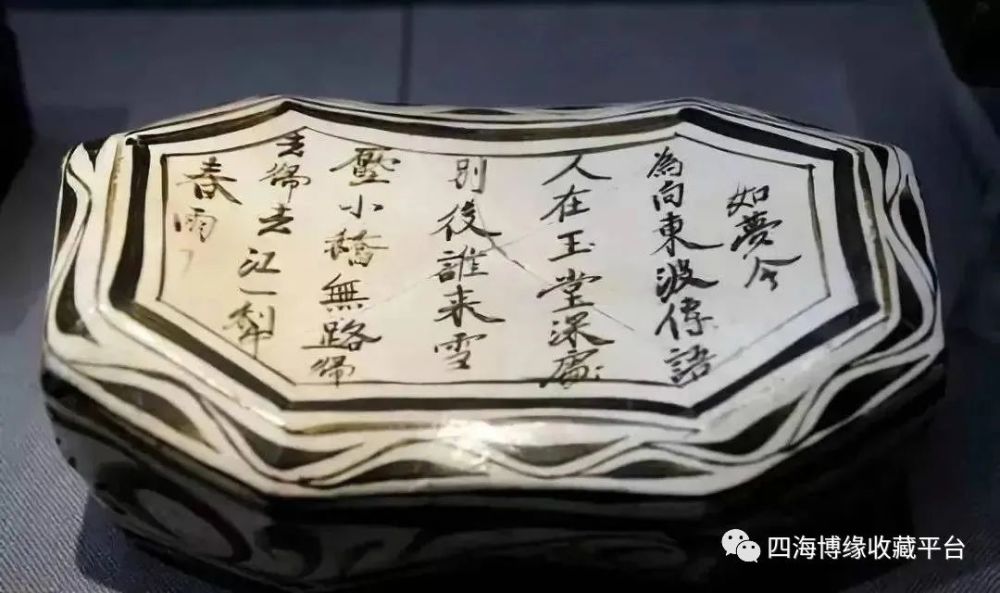 如夢令
為向東波傳語
人在玉堂深處
別後誰来雪
壓小橋無路歸
去歸去江一犁
春雨
四海博缘收藏平台